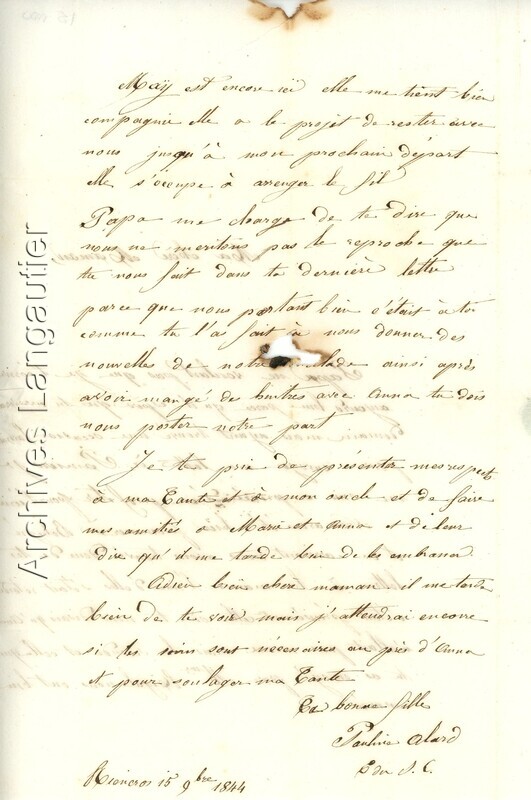 May est encore ici elle me tient bien
compagnie elle a le projet de rester avec
nous jusqu'à mon prochain départ
elle s'occupe à arrenger le fil
Papa me charge de te dire que
nous ne meritons pas le reproche que
tu nous fait dans ta dernière lettre
parce que nous portant bien c'était à toi
comme tu l'a fait à nous donner des
nouvelles de notre malade ainsi après
avoir mangé des huitres avec Anna tu dois
nous porter notre part
Je te prie de présenter mes respects
à ma Tante et à mon oncle et de faire
mes amitiés a Marie et Anna et de leur
dire qu'il me tarde bien de les embrasser.
Adieu bien chere maman. il me tarde
bien de te voir mais j'attendrai encore
si tes soins sont nécessaires au près d'Anna
et pour soulager ma Tante
Ta bonne fille
Pauline Alard
E der S. C.
Rioncros 15 9bre 1844
Archives Langautier